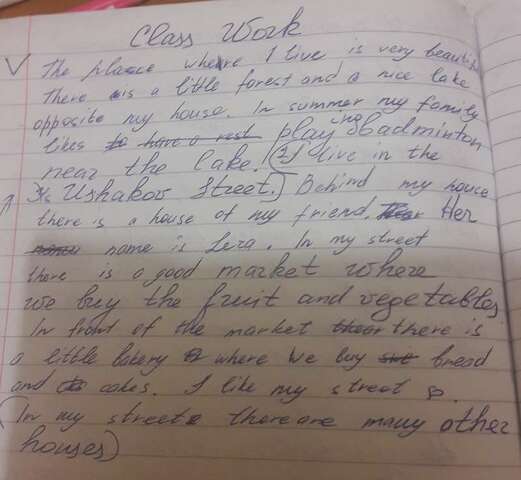 Class Work
The place where I live is very beautiful
There is a little forest and a nice lake
opposite my house. In summer my family
likes to have a rest playing badminton
near the lake. (I live in the
Ushakov Street.) Behind my house
there is a house of my friend. Her
name is Lera. In my street
there is a good market where
we buy the fruit and vegetables
In front of the market there is
a little bakery where we buy bread
and cakes. I like my street
(In my street there are many other
houses)